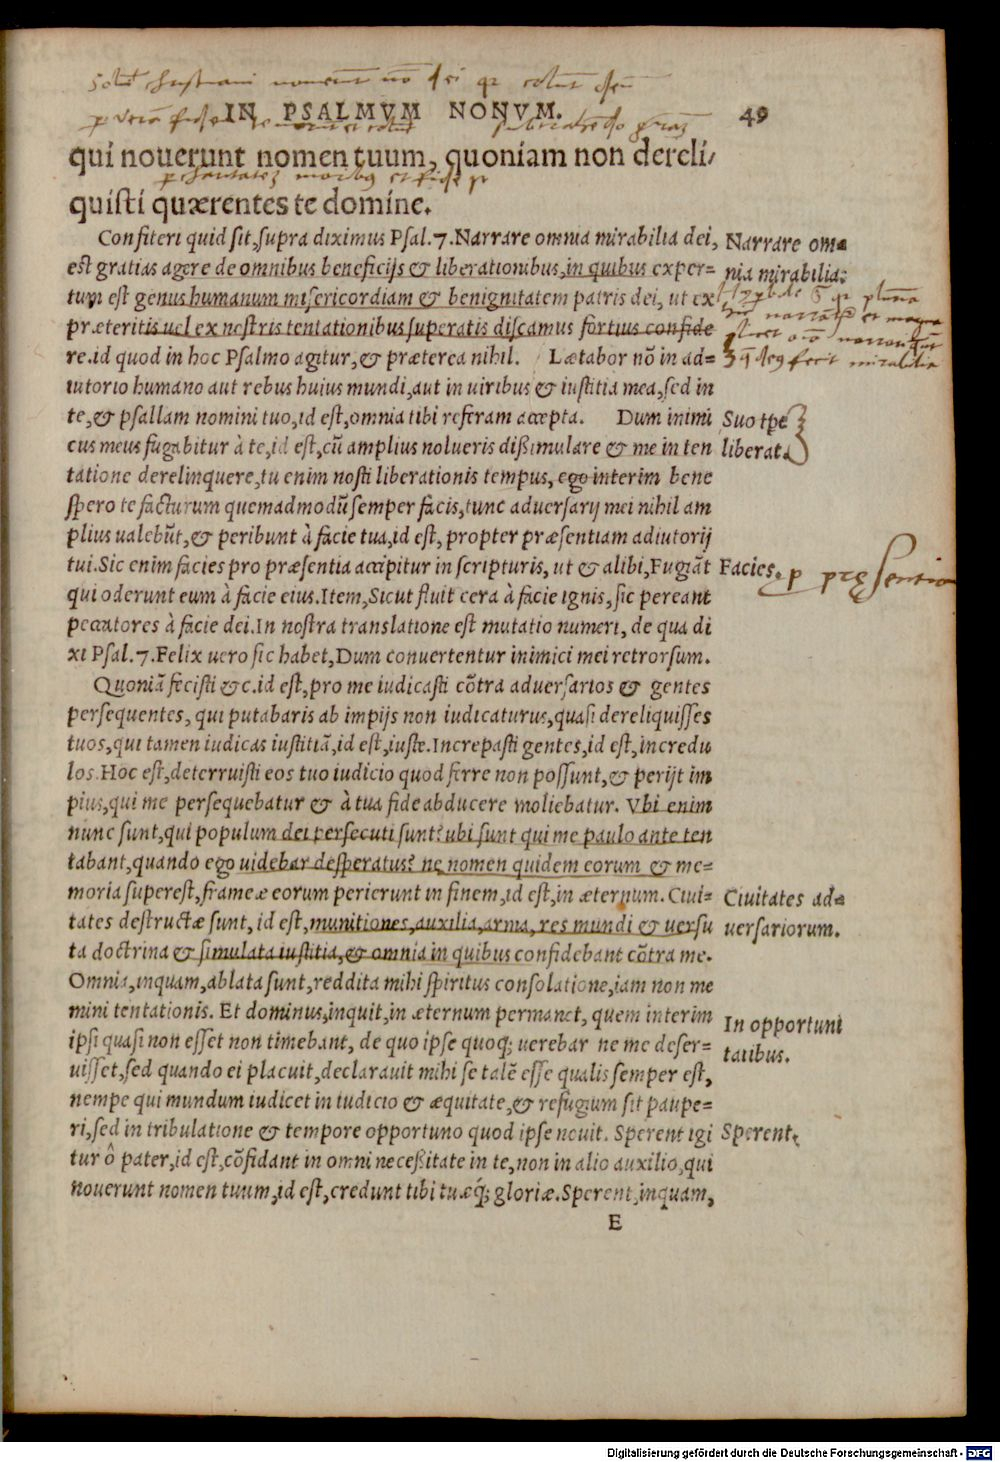 IN PSALMVM NONVM. 49
qui nouerunt nomen tuum, quoniam non dereli/
quisti quærentes te domine.
Confiteri quid sit, supra diximus Psal. 7. Narrare omnia mirabilia dei,
Narrare om=
est gratias agere de omnibus beneficijs & liberationibus, in quibus exper=
nia mirabilia.
tum est genus humanum misericordiam & benignitatem patris dei, ut ex
præteritis uel ex nostris tentationibus superatis discamus fortius confide
re. id quod in hoc Psalmo agitur, & præterea nihil. Lætabor nõ in ad=
iutorio humano aut rebus huius mundi, aut in uiribus & iustitia mea, sed in
te, & psallam nomini tuo, id est, omnia tibi referam accepta. Dum inimi
Suo tpe
cus meus fugabitur à te, id est, cũ amplius nolueris dißimulare & me in ten
liberat.
tatione derelinquere, tu enim nosti liberationis tempus, ego interim bene
spero te facturum quemadmodũ semper facis, tunc aduersarij mei nihil am
plius ualebũt, & peribunt à facie tua, id est, propter præsentiam adiutorij
tui. Sic enim facies pro præsentia accipitur in scripturis, ut & alibi, Fugiãt
Facies. p pręsentia
qui oderunt eum à facie eius. Item, Sicut fluit cera à facie ignis, sic pereant
peccatores à facie dei. In nostra translatione est mutatio numeri, de qua di
xi Psal. 7. Felix uero sic habet, Dum conuertentur inimici mei retrorsum.
Quoniã fecisti &c. id est, pro me iudicasti cõtra aduersarios & gentes
persequentes, qui putabaris ab impijs non iudicaturus, quasi dereliquisses
tuos, qui tamen iudicas iustitiã, id est, iuste. Increpasti gentes, id est, incredu
los. Hoc est, deterruisti eos tuo iudicio quod ferre non possunt, & perijt im
pius, qui me persequebatur & à tua fide abducere moliebatur. Vbi enim
nunc sunt, qui populum dei persecuti sunt? ubi sunt qui me paulo ante ten
tabant, quando ego uidebar desperatus? ne nomen quidem eorum & me=
moria superest, frameæ eorum perierunt in finem, id est, in æternum. Ciui=
Ciuitates ad=
tates destructæ sunt, id est, munitiones, auxilia, arma, res mundi & uersu
uersariorum.
ta doctrina & simulata iustitia, & omnia in quibus confidebant cõtra me.
Omnia, inquam, ablata sunt, reddita mihi spiritus consolatione, iam non me
mini tentationis. Et dominus, inquit, in æternum permanet, quem interim
In opportuni
ipsi quasi non esset non timebant, de quo ipse quoq; uerebar ne me deser=
tatibus.
uisset, sed quando ei placuit, declarauit mihi se talẽ esse qualis semper est,
nempe qui mundum iudicet in iudicio & æquitate, & refugium sit paupe=
ri, sed in tribulatione & tempore opportuno quod ipse nouit. Sperent igi
Sperent.
tur ô pater, id est, cõfidant in omni neceßitate in te, non in alio auxilio, qui
nouerunt nomen tuum, id est, credunt tibi tuæq́; gloriæ. Sperent, inquam,
E
Digitalisierung gefördert durch die Deutsche Forschungsgemeinschaft - DFG